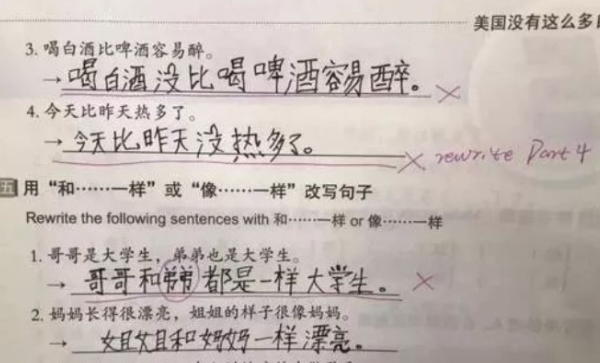 美国没有这么多
3. 喝白酒比啤酒容易醉。
→ 喝白酒没比喝啤酒容易醉。 ×
4. 今天比昨天热多了。
→ 今天比昨天没热多了。 × rewrite Part 4
五 用“和……一样”或“像……一样”改写句子
Rewrite the following sentences with 和……一样 or 像……一样
1. 哥哥是大学生，弟弟也是大学生。
→ 哥哥和弟弟都是一样大学生。 ×
2. 妈妈长得很漂亮，姐姐的样子很像妈妈。
→ 姐姐和妈妈一样漂亮。